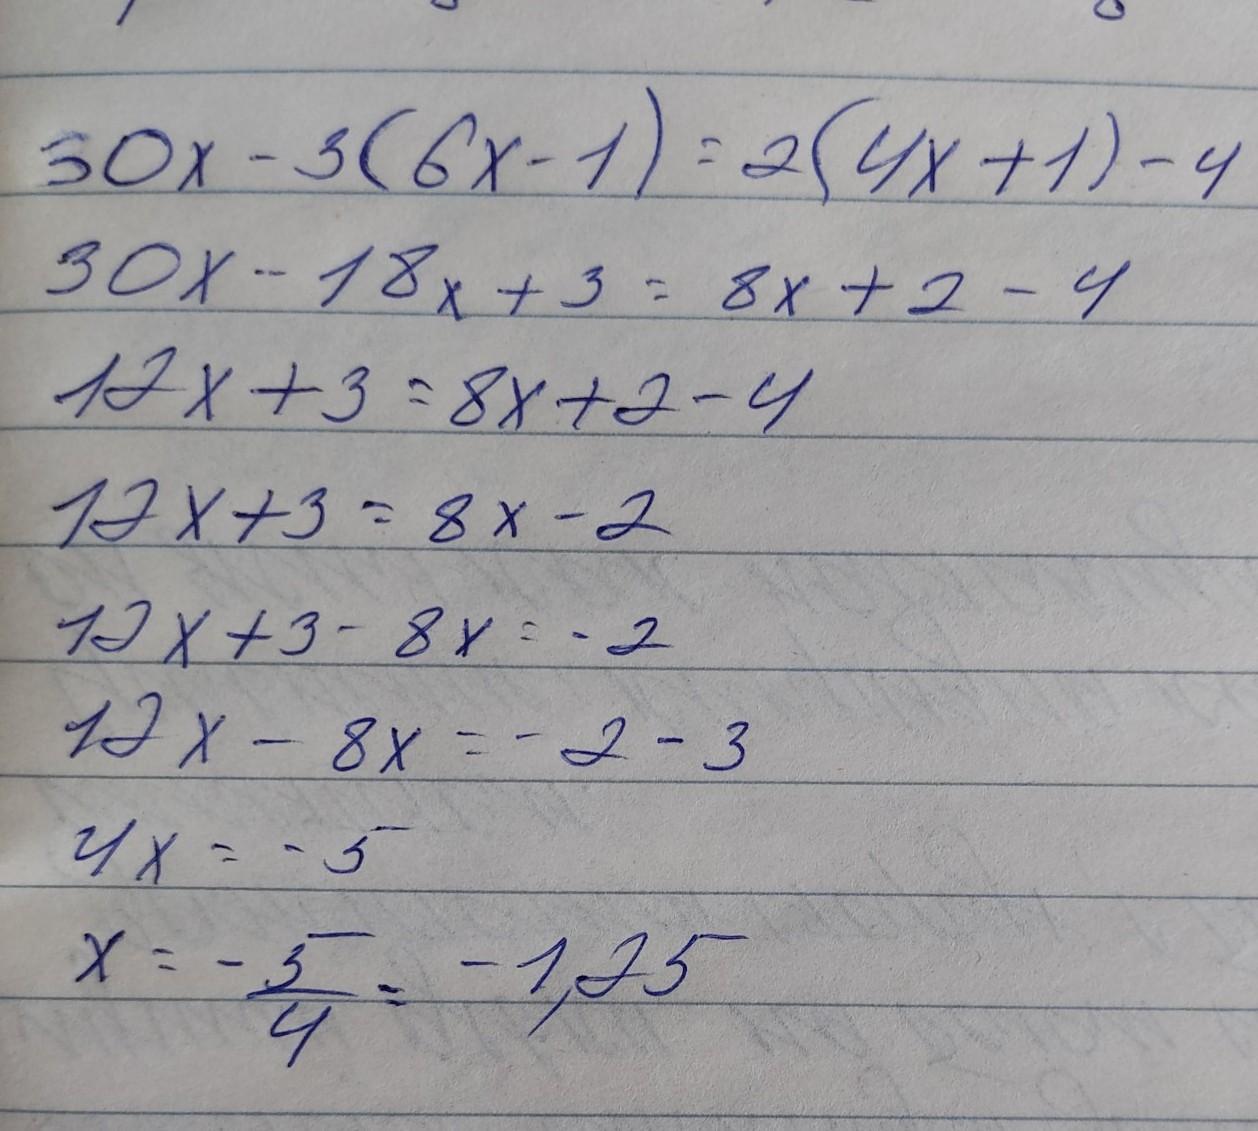 30x - 3(6x - 1) = 2(4x + 1) - 4
30x - 18x + 3 = 8x + 2 - 4
12x + 3 = 8x + 2 - 4
12x + 3 = 8x - 2
12x + 3 - 8x = -2
12x - 8x = -2 - 3
4x = -5
x = -5/4 = -1,25